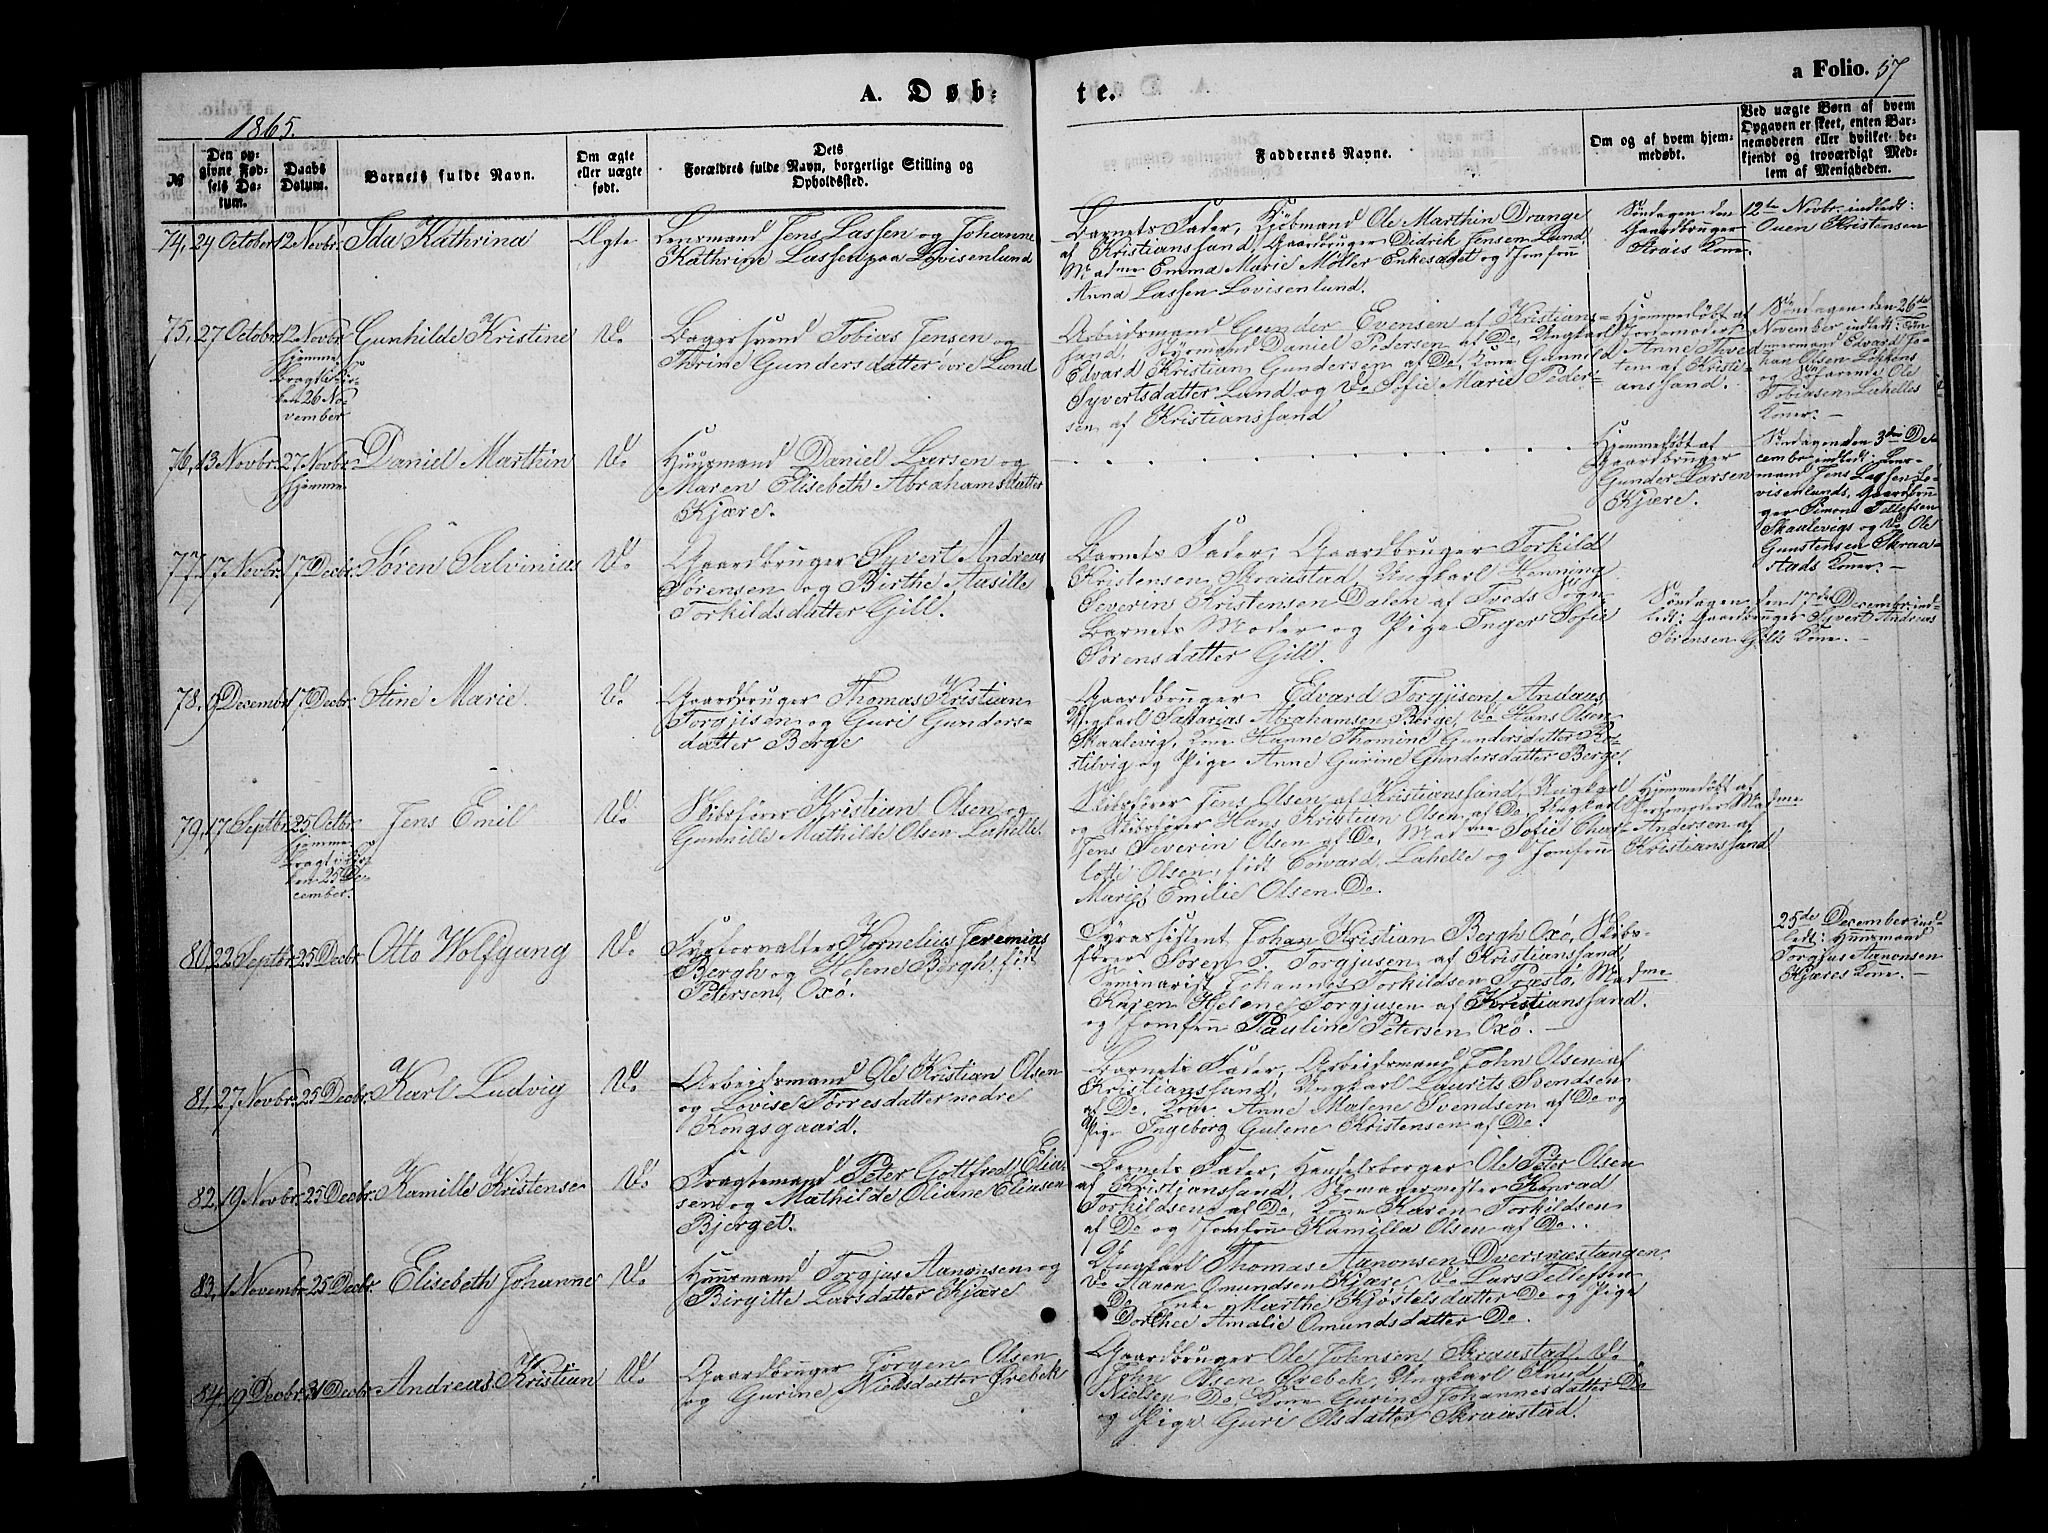 A. Døb-
te.
a Folio. 57
1865.
№
Den opgivne Fødsels Datum.
Daabs Datum.
Barnets fulde Navn.
Om ægte eller uægte født.
Dets Forældres fulde Navn, borgerlige Stilling og Opholdssted.
Faddernes Navne.
Om og af hvem hjemmedøbt.
Ved uægte Børn af hvem Opgaven er skeet, enten Barnemoderen eller hvilket bekjendt og troværdigt Medlem af Menigheden.
74, 24 October 12 Novbr. Ida Kathrina Ægte
Lensmand Jens Lassen og Johanne
Kathrine Lassen paa Lovisenlund
Barnets Fader, Kjøbmand Ole Marthin Drange
af Kristianssand, Gaardbruger Didrik Jensen Lund,
Madme Emma Marie Møller Enkesædet og Jomfru
Anna Lassen Lovisenlund.
Søndagen den 12te Novbr. indledt:
Gaardbruger Ouen Kristensen
Strais Kone.
75, 27 October 12 Novbr. Gunhilde Kristine Do
hjemme,
bragt i Kir-
ken 26 No-
vember
Bagersvend Tobias Jensen og
Thrine Gundersdatter øvre Lund
Arbeidsmand Gunder Evensen af Kristians-
sand, Styrmand Daniel Pedersen af Do, Ungkarl
Edvard Kristian Gundersen af Do, Kone Gunnild
Syvertsdatter Lund og Do Sofie Marie Peder-
sen af Kristianssand
Hjemmedøbt af
Jordemoder
Anne Tved
ten af Kristi-
anssand.
Søndagen den 26de
November indledt: Tøm-
mermand Edvard Jo-
han Olsen Løkkens
og Søfarende Ole
Tobiasen Lahelles
Koner. -
76, 13 Novbr. 27 Novbr. Daniel Marthin Do
hjemme
Huusmand Daniel Larsen og
Maren Elisebeth Abrahamsdatter
Kjære.
Hjemmedøbt af
Gaardbruger
Gunder Larsen
Kjære.
Søndagen den 3die De-
cembr indledt: Lens-
mand Jens Lassen Lo-
visenlunds, Gaardbru-
ger Simon Tellefsen
Skaalevigs og Do Ole
Gunstensen Skraa-
stads Koner. -
77, 17 Novbr. 17 Decbr. Søren Salvinius Do
Gaardbruger Syvert Andreas
Sørensen og Birthe Aasille
Torkildsdatter Gill.
Barnets Fader, Gaardbruger Torkild
Kristensen Skraastad, Ungkarl Henning
Severin Kristensen Dalen af Tveds Sogn,
Barnets Moder og Pige Inger Sofie
Sørensdatter Gill.
Søndagen den 17de Decembr. ind-
ledt: Gaardbruger Syvert Andreas
Sørensen Gills Kone. -
78, 9 Decembr. 17 Decbr. Stine Marie Do
Gaardbruger Thomas Kristian
Torgjisen og Guri Gunders-
datter Berge
Gaardbruger Edvard Torgjisen Andaas,
Ungkarl Sakarias Abrahamsen Berge, Do Hans Olsen
Skaalevig, Kone Hanne Thomine Gundersdatter Ko-
stilvig og Pige Anne Gurine Gundersdatter Berge.
79, 17 Septbr. 25 Octbr. Jens Emil Do
hjemme og
bragt i Kir-
ken 25 De-
cember.
Skibsfører Kristian Olsen og
Gunnille Mathilde Olsen Lahelle.
Skibsfører Jens Olsen af Kristianssand, Ungkarl
og Skibsfører Hans Kristian Olsen af Do, Ungkarl
Jens Severin Olsen af Do, Madme Sofie Char-
lotte Olsen, født Edvard, Lahelle og Jomfru
Marie Emilie Olsen Do.
Hjemmedøbt af
Jordmoder Madme
Andersen af
Kristianssand
80, 22 Septbr. 25 Decbr. Otto Wolfgung Do
Fyrforvalter Kornelius Jeremias
Bergh og Helene Bergh, født
Petersen, Oxø.
Fyrassistent Johan Kristian Bergh Oxø, Skibs-
fører Søren T. Torgjusen af Kristianssand,
Seminarist Johannes Torkildsen Præstø, Madme
Karen Helene Torgjusen af Kristianssand.
og Jomfru Pauline Petersen Oxø. -
25de December ind-
ledt: Huusmand
Torgjus Aanonsen
Kjæres Kone. -
81, 27 Novbr. 25 Decbr. Karl Ludvig Do
Arbeidsmand Ole Kristian Olsen
og Lovise Torresdatter nedre
Kongsgaard.
Barnets Fader, Arbeidsmand John Olsen af
Kristianssand, Ungkarl Laurits Svendsen
af Do, Kone Anne Malene Svendsen af Do og
Pige Ingeborg Gulene Kristensen af Do.
82, 19 Novbr. 25 Decbr. Kamille Kristense Do
Fragtemand Peter Gottfred Elia-
sen og Mathilde Oliane Eliasen
Bjerget.
Barnets Fader, Handelsborger Ole Peter Olsen
af Kristjanssand, Skomagermester Konrad
Torkildsen af Do, Kone Karen Torkildsen
af Do og Jomfru Kamilla Olsen af Do.
83, 1 Novembr. 25 Decbr. Elisebeth Johanne Do
Huusmand Torgjus Aanonsen og
Birgitte Larsdatter Kjære
Ungkarl Thomas Aanonsen Dversnæstangen,
Do Aanon Omundsen Kjære, Do Lars Tellefsen
Do, Enke Marthe Kjøstelsdatter Do og Pige
Dorthee Amalie Omundsdatter Do.
84, 19 Decbr. 31 Decbr. Andreas Kristian Do
Gaardbruger Jørgen Olsen
og Gurine Nielsdatter Ørebek
Gaardbruger Ole Johnsen Skraastad, Do
John Olsen Ørebek, Ungkarl Knud
Nielsen Do, Kone Gurine Johannesdatter Do
og Pige Guri Olsdatter Skraastad.